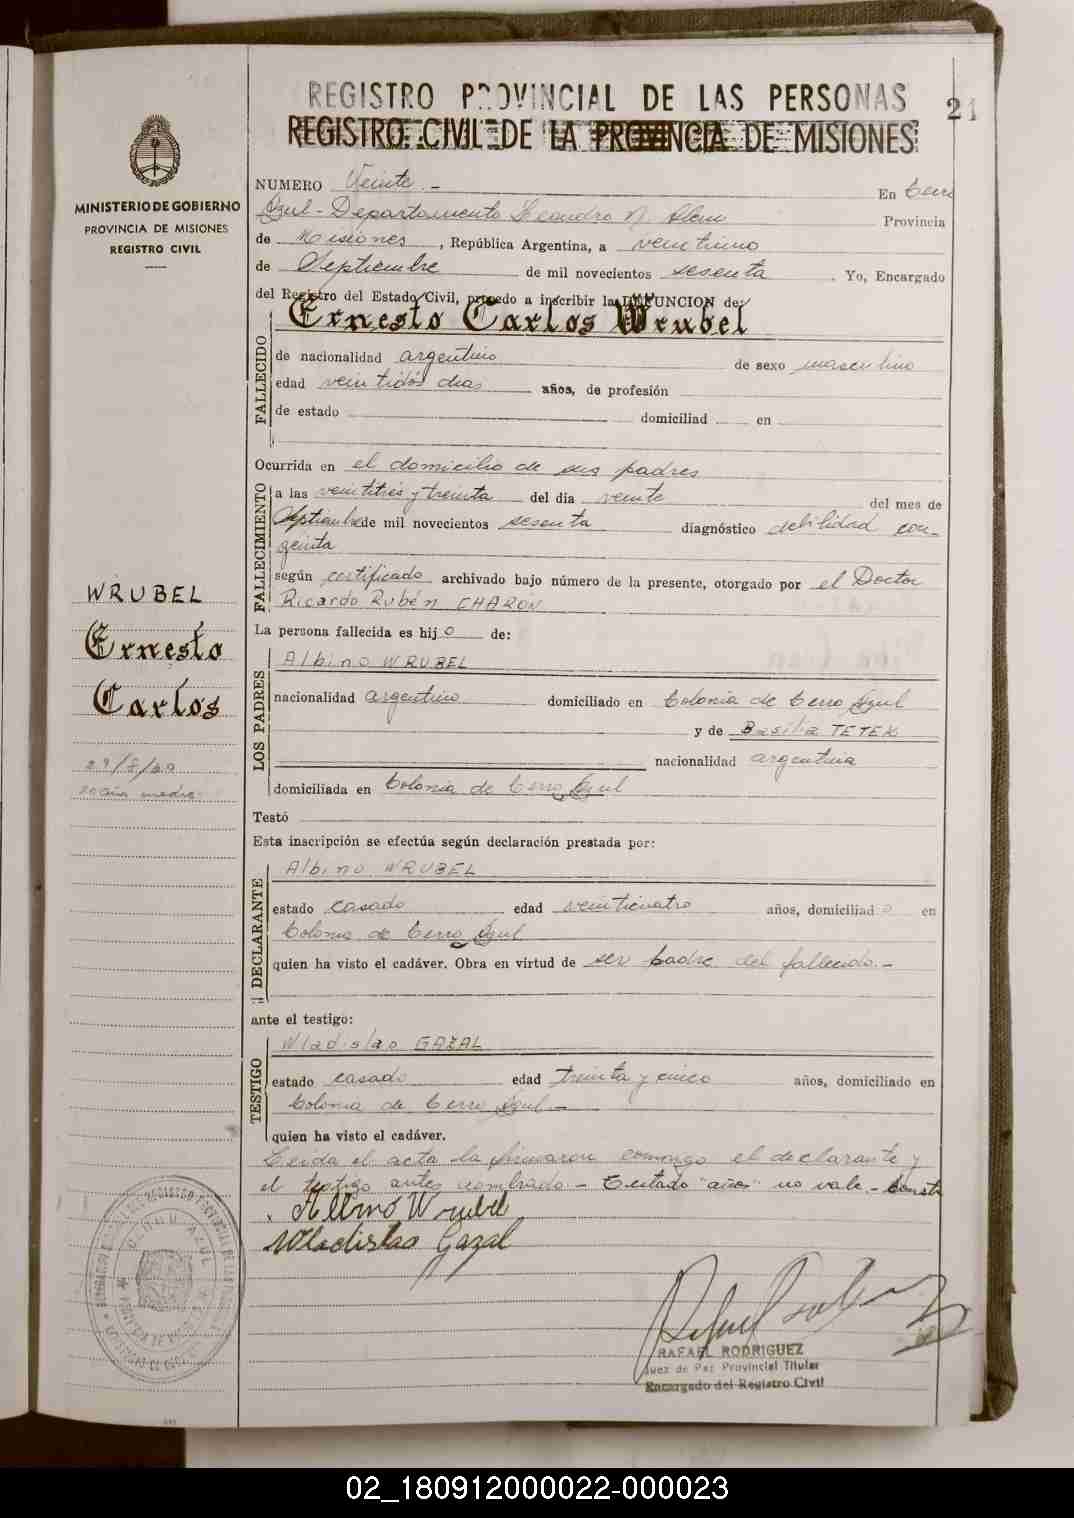 REGISTRO PROVINCIAL DE LAS PERSONAS
21
REGISTRO CIVIL DE LA PROVINCIA DE MISIONES
MINISTERIO DE GOBIERNO
PROVINCIA DE MISIONES
REGISTRO CIVIL
NUMERO Veinte.- En Cerro
Azul - Departamento Leandro N. Alem Provincia
de Misiones, República Argentina, a veintiuno
de Septiembre de mil novecientos sesenta. Yo, Encargado
del Registro del Estado Civil, procedo a inscribir la DEFUNCION de:
Ernesto Carlos Wrubel
FALLECIDO
de nacionalidad argentino de sexo masculino
edad veintidós días años, de profesión
de estado domiciliad en
Ocurrida en el domicilio de sus padres
FALLECIMIENTO
a las veintitrés y treinta del día veinte del mes de
Septiembre de mil novecientos sesenta diagnóstico debilidad con-
genita
según certificado archivado bajo número de la presente, otorgado por el Doctor
Ricardo Rubén CHARON
WRUBEL
Ernesto
Carlos
La persona fallecida es hijo de:
LOS PADRES
Albino WRUBEL
nacionalidad argentino domiciliado en Colonia de Cerro Azul
y de Basilia TETEK
nacionalidad argentina
domiciliada en Colonia de Cerro Azul
Testó
Esta inscripción se efectúa según declaración prestada por:
DECLARANTE
Albino WRUBEL
estado casado edad veinticuatro años, domiciliado en
Colonia de Cerro Azul
quien ha visto el cadáver. Obra en virtud de ser padre del fallecido.-
ante el testigo:
TESTIGO
Wladislao GAZAL
estado casado edad treinta y cinco años, domiciliado en
Colonia de Cerro Azul -
quien ha visto el cadáver.
Leida el acta la firmaron conmigo el declarante y
el testigo antes nombrado - Testado "años" no vale.- Conste
Albino Wrubel
Wladislao Gazal
RAFAEL RODRIGUEZ
Juez de Paz Provincial Titular
Encargado del Registro Civil
CERRO AZUL
02_180912000022-000023